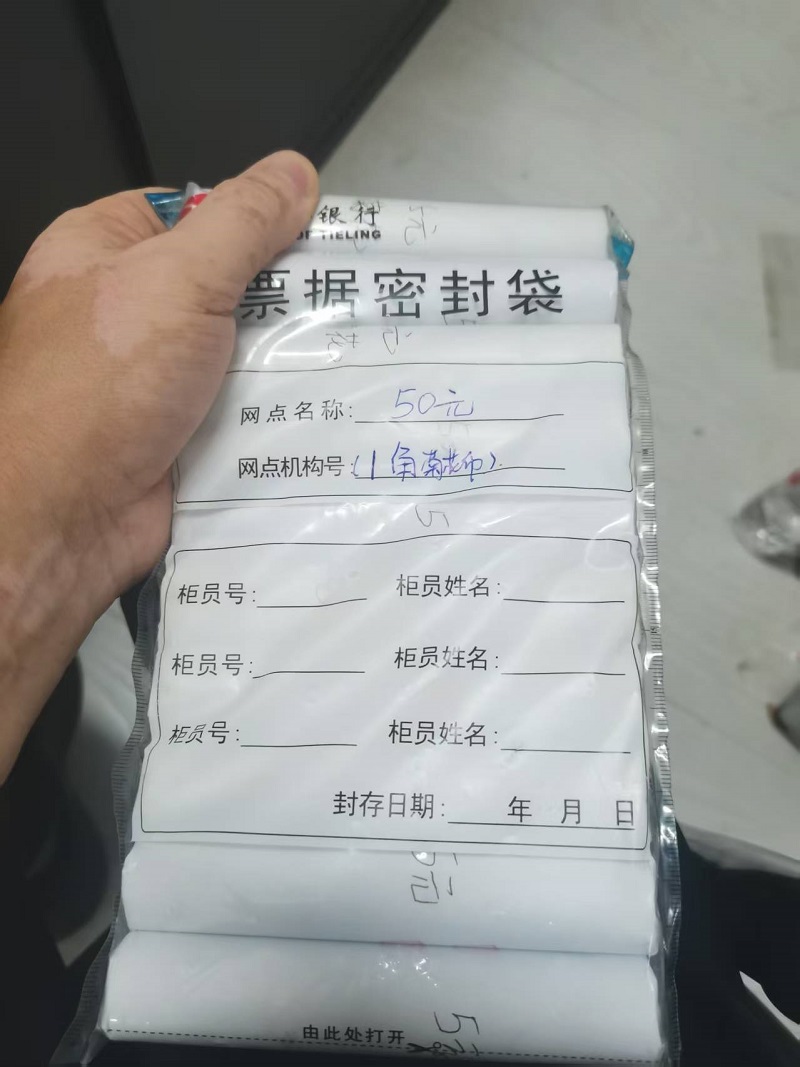 银行
OF TIELING
票据密封袋
网点名称: 50元
网点机构号:(1角菊花币)
5
柜员号: 柜员姓名:
柜员号: 柜员姓名:
柜员号: 柜员姓名:
封存日期: 年 月 日
5元
由此处打开
5